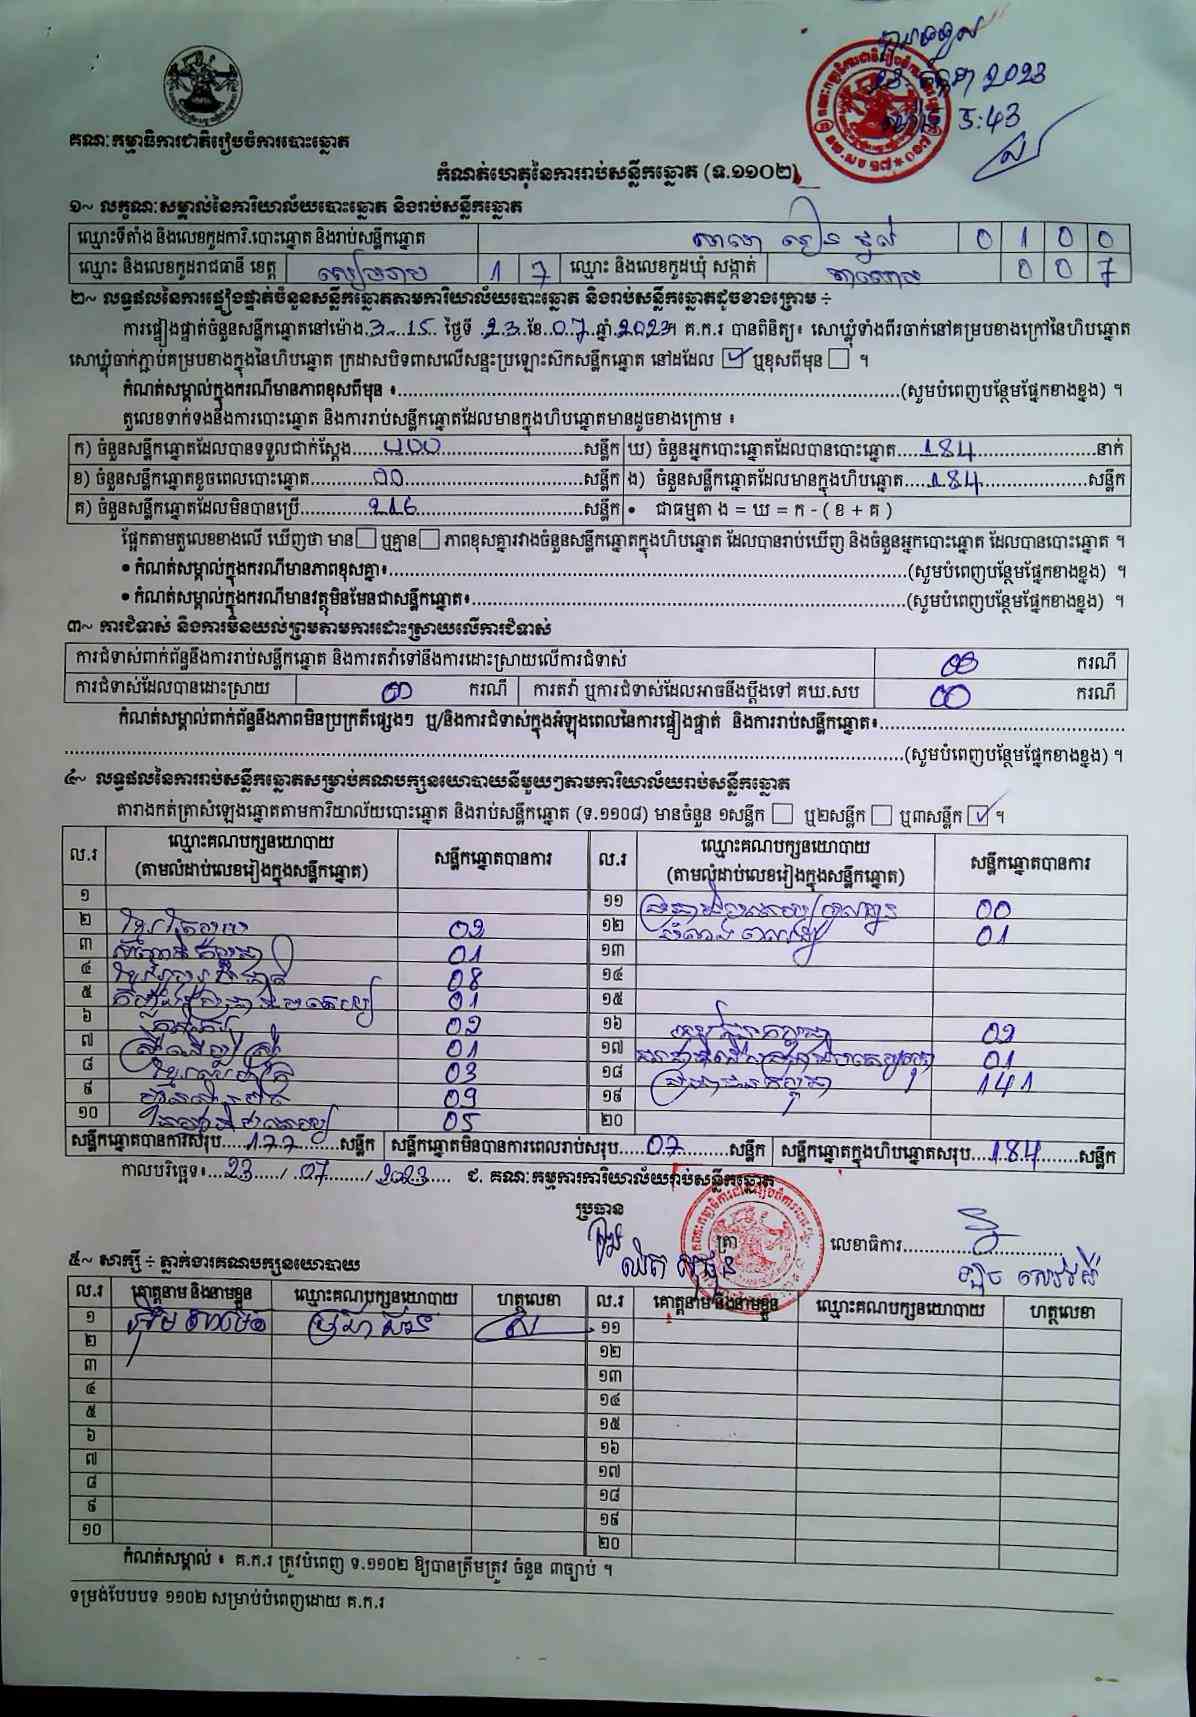 គណៈកម្មាធិការជាតិរៀបចំការបោះឆ្នោត
2023
5:43
កំណត់ហេតុនៃការរាប់សន្លឹកឆ្នោត (ទ.១១០២)
១~ លក្ខណៈសម្គាល់នៃការិយាល័យបោះឆ្នោត និងរាប់សន្លឹកឆ្នោត
ឈ្មោះទីតាំង និងលេខកូដការិ.បោះឆ្នោត និងរាប់សន្លឹកឆ្នោត សាលា រៀន 0 1 0 0
ឈ្មោះ និងលេខកូដរាជធានី ខេត្ត សៀមរាប 1 7 ឈ្មោះ និងលេខកូដឃុំ សង្កាត់ 0 0 7
២~ លទ្ធផលនៃការផ្ទៀងផ្ទាត់ចំនួនសន្លឹកឆ្នោតតាមការិយាល័យបោះឆ្នោត និងរាប់សន្លឹកឆ្នោតដូចខាងក្រោម ÷
ការផ្ទៀងផ្ទាត់ចំនួនសន្លឹកឆ្នោតនៅម៉ោង.3...15. ថ្ងៃទី .23.ខែ.07.ឆ្នាំ.2023។ គ.ក.រ បានពិនិត្យ៖ សោឃ្លុំទាំងពីរចាក់នៅគម្របខាងក្រៅនៃហិបឆ្នោត
សោឃ្លុំចាក់ភ្ជាប់គម្របខាងក្នុងនៃហិបឆ្នោត ក្រដាសបិទពាសលើសន្ទះប្រឡោះស៊កសន្លឹកឆ្នោត នៅដដែល ☑ ឬខុសពីមុន ☐ ។
កំណត់សម្គាល់ក្នុងករណីមានភាពខុសពីមុន ៖..........(សូមបំពេញបន្ថែមផ្នែកខាងខ្នង) ។
តួលេខទាក់ទងនឹងការបោះឆ្នោត និងការរាប់សន្លឹកឆ្នោតដែលមានក្នុងហិបឆ្នោតមានដូចខាងក្រោម ៖
ក) ចំនួនសន្លឹកឆ្នោតដែលបានទទួលជាក់ស្តែង.....400.....សន្លឹក ឃ) ចំនួនអ្នកបោះឆ្នោតដែលបានបោះឆ្នោត....184.....នាក់
ខ) ចំនួនសន្លឹកឆ្នោតខូចពេលបោះឆ្នោត.....00.....សន្លឹក ង) ចំនួនសន្លឹកឆ្នោតដែលមានក្នុងហិបឆ្នោត....184.....សន្លឹក
គ) ចំនួនសន្លឹកឆ្នោតដែលមិនបានប្រើ.....216.....សន្លឹក • ជាធម្មតា ង = ឃ = ក - ( ខ + គ )
ផ្អែកតាមតួលេខខាងលើ ឃើញថា មាន☐ ឬគ្មាន☐ ភាពខុសគ្នារវាងចំនួនសន្លឹកឆ្នោតក្នុងហិបឆ្នោត ដែលបានរាប់ឃើញ និងចំនួនអ្នកបោះឆ្នោត ដែលបានបោះឆ្នោត ។
• កំណត់សម្គាល់ក្នុងករណីមានភាពខុសគ្នា៖..........(សូមបំពេញបន្ថែមផ្នែកខាងខ្នង) ។
• កំណត់សម្គាល់ក្នុងករណីមានវត្ថុមិនមែនជាសន្លឹកឆ្នោត៖..........(សូមបំពេញបន្ថែមផ្នែកខាងខ្នង) ។
៣~ ការជំទាស់ និងការមិនយល់ព្រមតាមការដោះស្រាយលើការជំទាស់
ការជំទាស់ពាក់ព័ន្ធនឹងការរាប់សន្លឹកឆ្នោត និងការតវ៉ាទៅនឹងការដោះស្រាយលើការជំទាស់ 00 ករណី
ការជំទាស់ដែលបានដោះស្រាយ 00 ករណី ការតវ៉ា ឬការជំទាស់ដែលអាចនឹងប្តឹងទៅ គឃ.សប 00 ករណី
កំណត់សម្គាល់ពាក់ព័ន្ធនឹងភាពមិនប្រក្រតីផ្សេងៗ ឬ/និងការជំទាស់ក្នុងអំឡុងពេលនៃការផ្ទៀងផ្ទាត់ និងការរាប់សន្លឹកឆ្នោត៖..........
..........(សូមបំពេញបន្ថែមផ្នែកខាងខ្នង) ។
៤~ លទ្ធផលនៃការរាប់សន្លឹកឆ្នោតសម្រាប់គណបក្សនយោបាយនីមួយៗតាមការិយាល័យរាប់សន្លឹកឆ្នោត
តារាងកត់ត្រាសំឡេងឆ្នោតតាមការិយាល័យបោះឆ្នោត និងរាប់សន្លឹកឆ្នោត (ទ.១១០៨) មានចំនួន ១សន្លឹក ☐ ឬ២សន្លឹក ☐ ឬ៣សន្លឹក ☑ ។
ល.រ ឈ្មោះគណបក្សនយោបាយ (តាមលំដាប់លេខរៀងក្នុងសន្លឹកឆ្នោត) សន្លឹកឆ្នោតបានការ ល.រ ឈ្មោះគណបក្សនយោបាយ (តាមលំដាប់លេខរៀងក្នុងសន្លឹកឆ្នោត) សន្លឹកឆ្នោតបានការ
១ ១១ 00
២ 02 ១២ 01
៣ 01 ១៣
៤ 08 ១៤
៥ 01 ១៥
៦ 02 ១៦ 02
៧ 01 ១៧ 01
៨ 03 ១៨ ប្រជាជនកម្ពុជា 141
៩ 09 ១៩
១០ 05 ២០
សន្លឹកឆ្នោតបានការសរុប.....177.....សន្លឹក សន្លឹកឆ្នោតមិនបានការពេលរាប់សរុប.....07.....សន្លឹក សន្លឹកឆ្នោតក្នុងហិបឆ្នោតសរុប....184.....សន្លឹក
កាលបរិច្ឆេទ៖...23..../..07...../..2023.... ជ. គណៈកម្មការការិយាល័យរាប់សន្លឹកឆ្នោត
ប្រធាន
ត្រា លេខាធិការ..........
៥~ សាក្សី ÷ ភ្នាក់ងារគណបក្សនយោបាយ
ល.រ គោត្តនាម និងនាមខ្លួន ឈ្មោះគណបក្សនយោបាយ ហត្ថលេខា ល.រ គោត្តនាម និងនាមខ្លួន ឈ្មោះគណបក្សនយោបាយ ហត្ថលេខា
១ ១១
២ ១២
៣ ១៣
៤ ១៤
៥ ១៥
៦ ១៦
៧ ១៧
៨ ១៨
៩ ១៩
១០ ២០
កំណត់សម្គាល់ ៖ គ.ក.រ ត្រូវបំពេញ ទ.១១០២ ឱ្យបានត្រឹមត្រូវ ចំនួន ៣ច្បាប់ ។
ទម្រង់បែបបទ ១១០២ សម្រាប់បំពេញដោយ គ.ក.រ